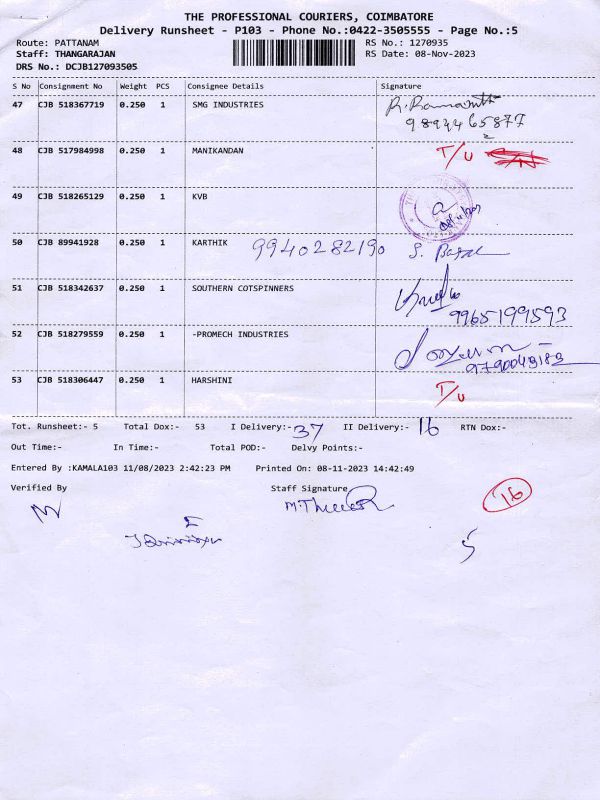 THE PROFESSIONAL COURIERS, COIMBATORE
Delivery Runsheet - P103 - Phone No.:0422-3505555 - Page No.:5
Route: PATTANAM RS No.: 1270935
Staff: THANGARAJAN RS Date: 08-Nov-2023
DRS No.: DCJB127093505
S No Consignment No Weight PCS Consignee Details Signature
47 CJB 518367719 0.250 1 SMG INDUSTRIES
48 CJB 517984998 0.250 1 MANIKANDAN T/U
49 CJB 518265129 0.250 1 KVB
50 CJB 89941928 0.250 1 KARTHIK 9940282190
51 CJB 518342637 0.250 1 SOUTHERN COTSPINNERS
9965199593
52 CJB 518279559 0.250 1 -PROMECH INDUSTRIES
53 CJB 518306447 0.250 1 HARSHINI T/U
Tot. Runsheet:- 5 Total Dox:- 53 I Delivery:- 37 II Delivery:- 16 RTN Dox:-
Out Time:- In Time:- Total POD:- Delvy Points:-
Entered By :KAMALA103 11/08/2023 2:42:23 PM Printed On: 08-11-2023 14:42:49
Verified By Staff Signature
16